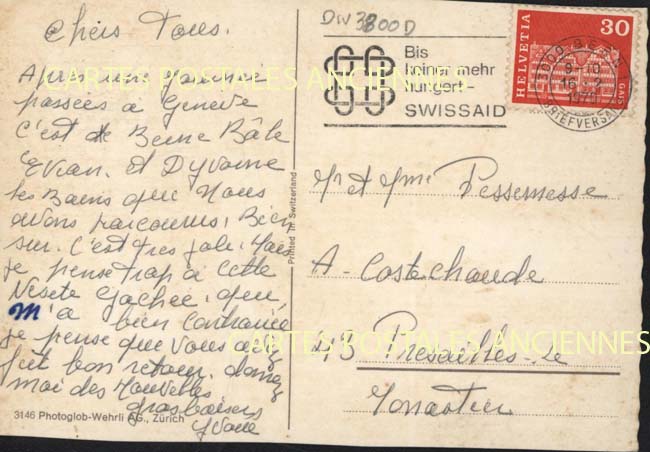 Chers Tous.
Après une journée
passées à Genève
C'est de Berne Bâle
Evian. et Dyvonne
les Bains que Nous
avons parcourus. Bien
sur. C'est tres joli. Mais
je pense trop a Cette
Visite Gachée. qui,
m'a bien Contrariée
je pense que vous avez
fait bon retour. donnez
moi des Nouvelles
Gros baisers
Yvone
3146 Photoglob-Wehrli AG., Zürich
Printed in Switzerland
Bis
keiner mehr
hungert-
SWISSAID
HELVETIA
30
GAIS
BRIEFVERSAND
Mr et Mme Pessemesse
A- Costechaude
43 Presailles-le
Monastier
CARTES POSTALES ANCIENNES
CARTES POSTALES ANCIENNES